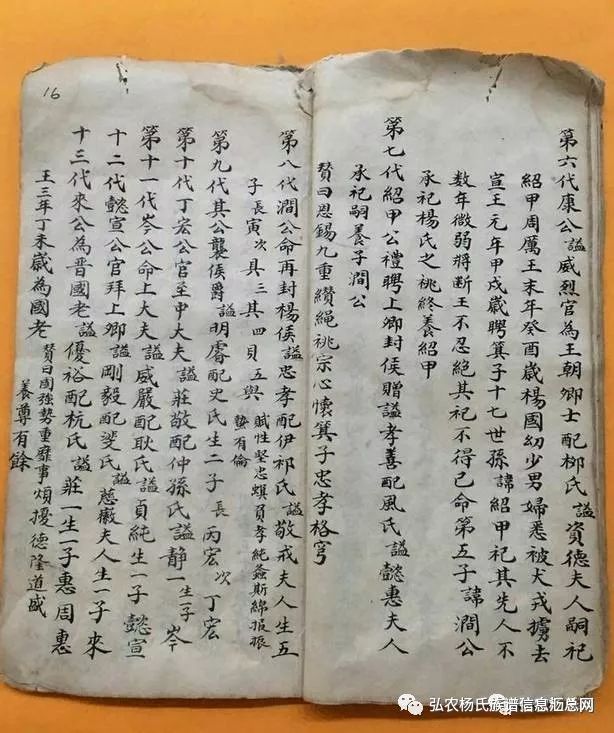 第六代康公謚威烈官為王朝卿士配柳氏謚資德夫人嗣祀
紹甲周厲王末年癸酉歲楊國幼少男婦悉被犬戎擄去
宣王元年甲戌歲聘箕子十七世孫諱紹甲祀其先人不
数年微弱將断王不忍絕其祀不得已命第五子諱澗公
承祀楊氏之祧終養紹甲
第七代紹甲公禮聘上卿封侯贈謚孝善配風氏謚懿惠夫人
承祀嗣養子澗公
贊曰恩錫九重纘繩祧宗心懷箕子忠孝格穹
第八代澗公命再封楊侯謚忠孝配伊祁氏謚敬戒夫人生五
子長寅次具三其四貝五與 賦性堅忠蜞員孝純螽斯綿振振
蟄有倫
第九代其公襲侯爵謚明睿配史氏生二子長丙宏次丁宏
第十代丁宏公官至中大夫謚莊敬配仲孫氏謚静一生一子岑
第十一代岑公命上大夫謚威嚴配耿氏謚貞純生一子懿宣
十二代懿宣公官拜上卿謚剛毅配斐氏謚慈徽夫人生一子來
十三代來公為晋國老謚優裕配杭氏謚莊一生一子惠周惠
王三年丁未歲為國老 贊曰國強勢重靡事煩擾德隆道盛
養尊有餘
16
弘农杨氏族谱信息汇总网